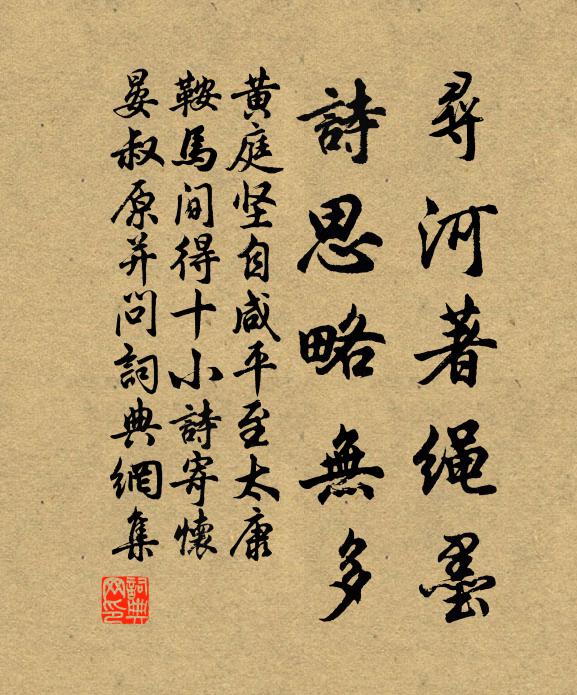 尋河著绳墨
詩思略無多
黄庭坚自咸平至太康
鞍馬间得十小詩寄懷
晏叔原并问詞典網集
詞典
网印